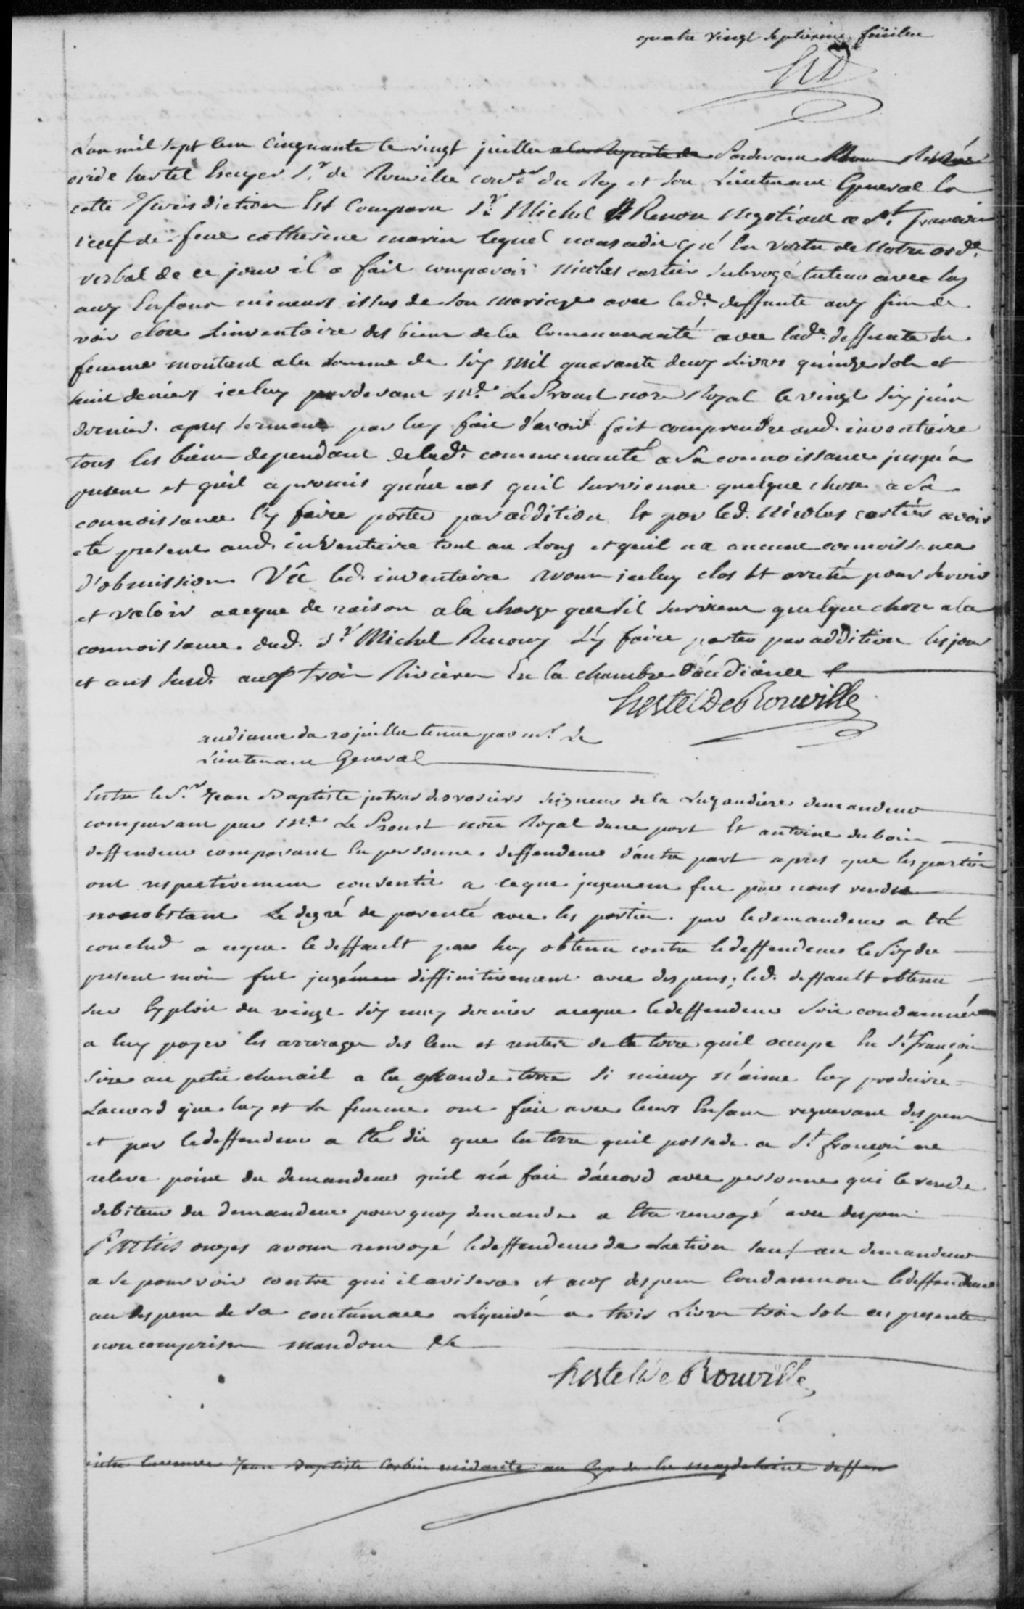 quatre vingt septieme feüillet
HD
L'an mil sept cens cinquante le vingt juillet a la Requete de Pardevant René
ovide hertel Ecuyer Sr. de Rouville conser. du Roy et son Lieutenant General En
cette Jurisdiction Est Comparu Sr. Michel Renou negotiant a St. francois
veuf de feue catherine marin lequel nous a dit qu'en vertu de notre ord.e
verbal de ce jour il a fait comparoir nicolas cartier subrogé tuteur avec luy
aux Enfans mineurs issus de son mariage avec lad.e deffunte aux fins de
voir clore L'inventaire des biens de la Communauté avec lad.e deffunte sa
femme montant a la somme de six mil quarante deux Livres quinze sols et
huit deniers iceluy pardevant m.e Le Proust no.re Royal le vingt six juin
dernier. apres serment par luy fait d'avoir fait comprendre aud. inventaire
tous les biens dependant de lad.e communauté a sa connoissance jusqu'a
present et quil a promis qu'au cas quil survienne quelque chose a sa
connoissance L'y faire porter par addition Et par led. Nicolas cartier avoir
eté present aud. inventaire tout au Long et quil na aucune connoissance
d'obmission Vû led. inventaire avons iceluy clos Et arreté pour servir
et valoir a ce que de raison a la charge que s'il survient quelque chose a la
connoissance dud. Sr. Michel Renoux L'y faire porter par addition les jour
et ans susd. aux trois Rivieres En la chambre d'audiance
hertel De Rouville
audiance du 20 juillet tenue par mr. le
Lieutenant General
Entre le Sr. Jean Baptiste jutras desrosiers seigneur de la Lusaudiere demandeur
comparant par m.e Le Proust no.re Royal dune part Et antoine dubois
deffendeur comparant En personne deffendeur d'autre part apres que les parties
ont respectivement consentis a ce que jugement fut par nous rendu
nonobstant Le degré de parenté avec les parties. par le demandeur a Eté
conclud a ce que le deffault par luy obtenu contre le deffendeur le six du
present mois fut jugé diffinitivement avec despens; led. deffault obtenu
sur Exploit du vingt six may dernier a ce que le deffendeur soit condamné
a luy payer les arrerages des Cens et rentes de la terre quil occupe En St. françois
size au petit chenail a la grande terre si mieux n'aime luy produire
Lacord que luy et sa femme ont fait avec leurs Enfans requerant despens
et par le deffendeur a Eté dit que la terre quil possede a St. françois ne
releve point du demandeur quil n'a fait d'acord avec personne qui le rende
debiteur du demandeur pourquoy demande a Etre renvoyé avec despens
Parties ouyes avons renvoyé le deffendeur de Laction sauf au demandeur
a se pourvoir contre qui il avisera et aux despens Condamnons le deffendeur
au despens de sa contumace Liquidés a trois Livres trois sols ces presentes
non comprises mandons &c
hertel De Rouville
entre Jean Baptiste Corbin residante au Cap de la magdelaine deffen